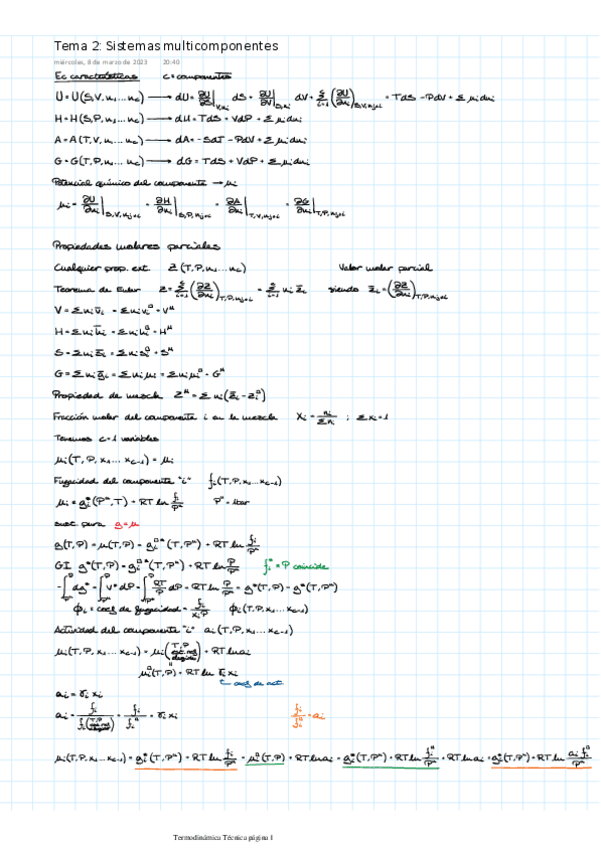 Tema 2: Sistemas multicomponentes
miércoles, 8 de marzo de 2023 20:40
Ec características c = componentes
U = U(S,V,n₁...n_c) → dU = ∂U/∂S|_V,ni dS + ∂U/∂V|_S,ni dV + Σ_{i=1}^c (∂U/∂ni)_S,V,nj≠i = TdS - PdV + Σ μi dni
H = H(S,P,n₁...n_c) → dH = TdS + VdP + Σ μi dni
A = A(T,V,n₁...n_c) → dA = -SdT - PdV + Σ μi dni
G = G(T,P,n₁...n_c) → dG = TdS + VdP + Σ μi dni
Potencial químico del componente → μi
μi = ∂U/∂ni|_S,V,nj≠i = ∂H/∂ni|_S,P,nj≠i = ∂A/∂ni|_T,V,nj≠i = ∂G/∂ni|_T,P,nj≠i
Propiedades molares parciales
Cualquier prop. ext. Z(T,P,n₁...n_c) Valor molar parcial
Teorema de Euler Z = Σ_{i=1}^c (∂Z/∂ni)_T,P,nj≠i = Σ_{i=1}^c ni z̄i siendo z̄i = (∂Z/∂ni)_T,P,nj≠i
V = Σ ni v̄i = Σ ni vi° + Vᴹ
H = Σ ni h̄i = Σ ni hi° + Hᴹ
S = Σ ni s̄i = Σ ni si° + Sᴹ
G = Σ ni ḡi = Σ ni μi = Σ ni μi° + Gᴹ
Propiedad de mezcla Zᴹ = Σ ni (z̄i - zi°)
Fracción molar del componente i en la mezcla Xi = ni/Σni ; Σxi = 1
Tenemos c+1 variables
μi(T, P, x₁...x_c-1) = μi
Fugacidad del componente "i" fi(T,P,x₁...x_c-1)
μi = gi*(P°,T) + RT ln fi/P° P° = 1bar
sust pura g = μ
g(T,P) = μ(T,P) = gi°*(T,P°) + RT ln fi/P°
GI g*(T,P) = gi°*(T,P°) + RT ln P/P° fi* = P coincide
-∫ dg* = ∫ v* dP = ∫ RT/P dP = RT ln P/P° = g*(T,P) - g*(T,P°)
ϕi = coef de fugacidad = fi/xiP ϕi(T,P,x₁...x_c-1)
Actividad del componente "i" ai(T,P,x₁...x_c-1)
μi(T,P,x₁...x_c-1) = μi(T,P) + RT ln ai
μi°(T,P) + RT ln γi xi
coef de act.
ai = γi xi
ai = fi/fi(T,P) = fi/fi° = γi xi fi/fi° = ai
μi(T,P,x₁...x_c-1) = gi*(T,P°) + RT ln fi/P° = μi°(T,P) + RT ln ai = gi*(T,P°) + RT ln fi°/P° + RT ln ai = gi*(T,P°) + RT ln ai fi°/P°
Termodinámica Técnica página 1